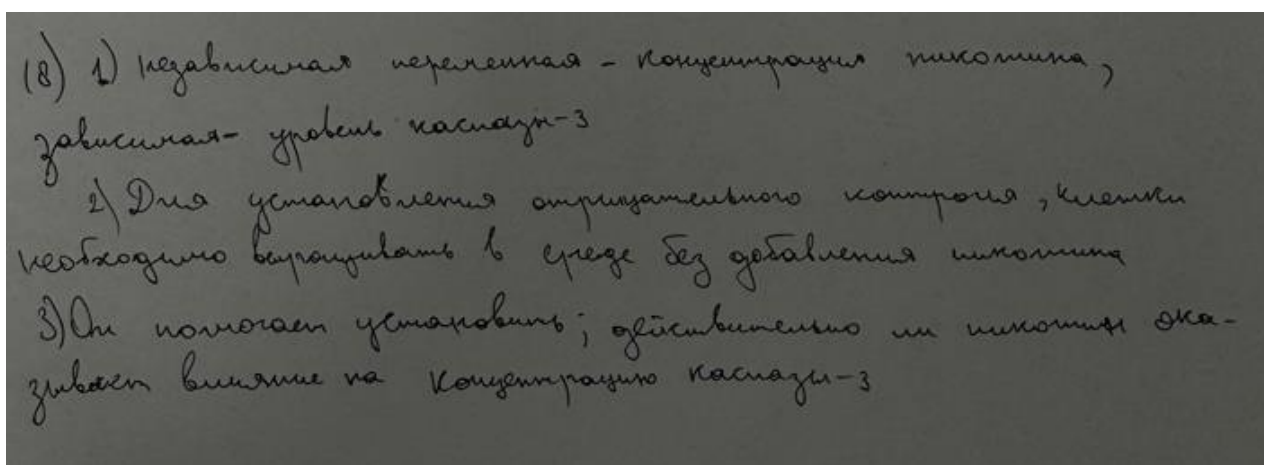 (8) 1) Независимая переменная - концентрация никотина,
зависимая - уровень каспазы-3
2) Для установления отрицательного контроля, клетки
необходимо выращивать в среде без добавления никотина
3) Он помогает установить; действительно ли никотин ока-
зывает влияние на концентрацию каспазы-3